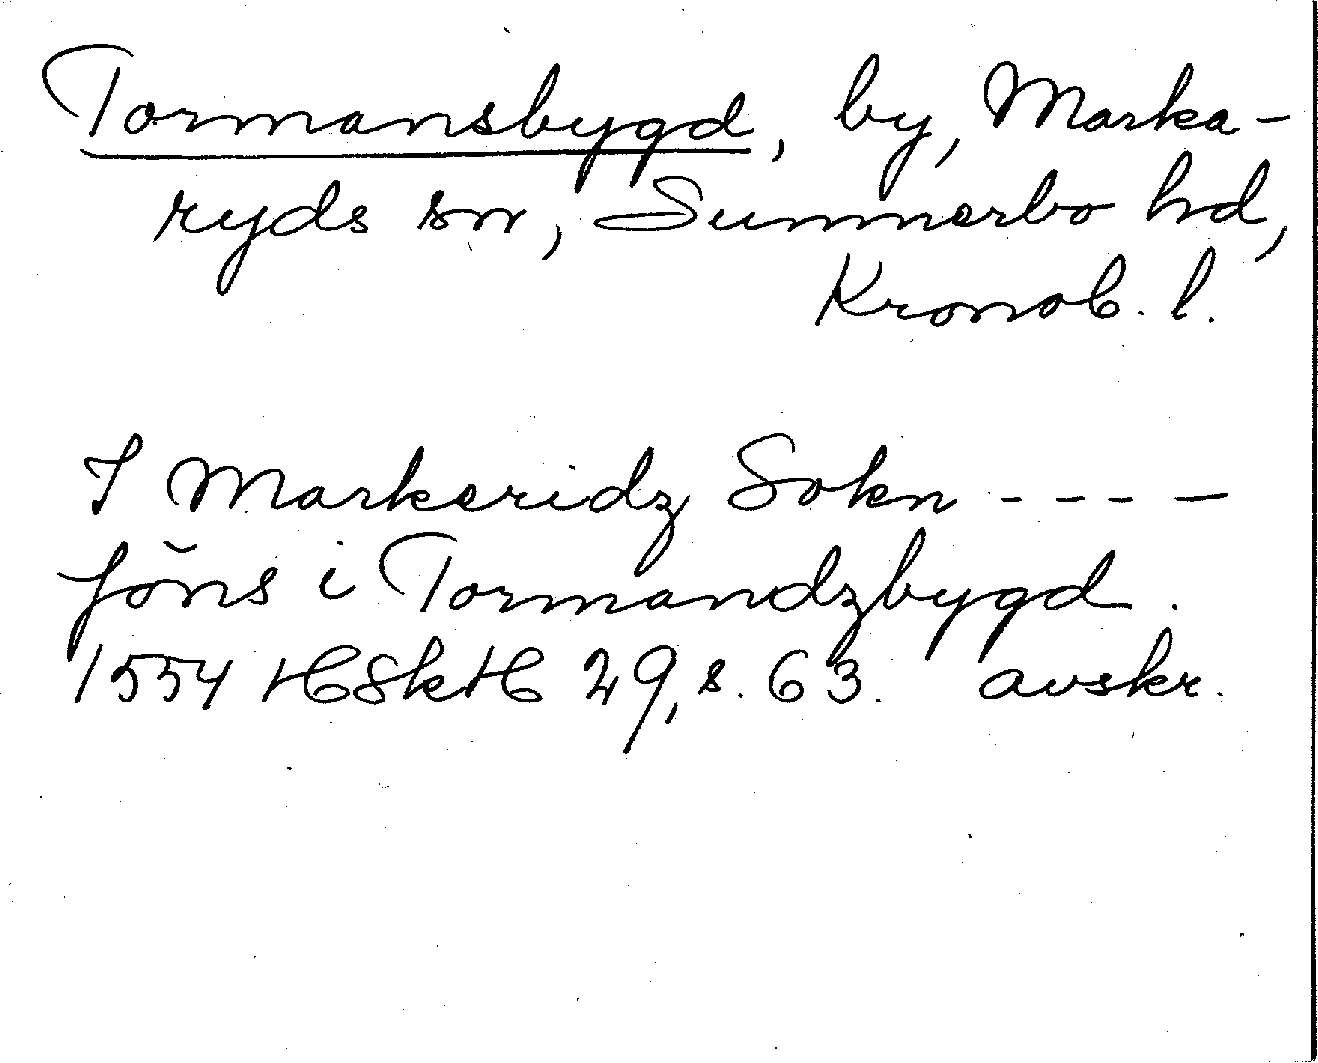 Tormansbygd, by, Marka-
ryds sn, Sunnerbo hd,
Kronob. l.
I Markeridz Sokn - - - -
Jöns i Tormandzbygd.
1554 HSkH 29, s. 63. avskr.